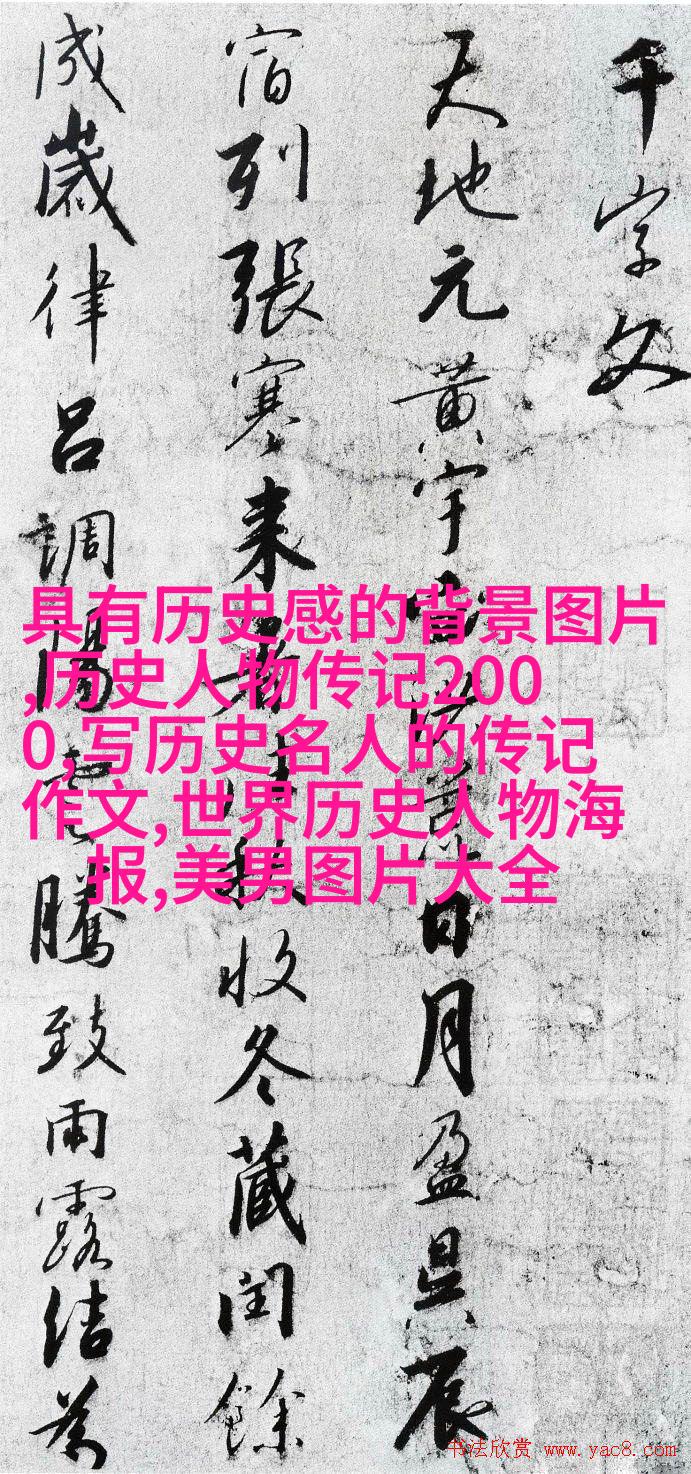 千字文
天地元黃宇宙洪荒日月盈昃辰
宿列張寒来暑往秋收冬蔵閏餘
成歲律呂調陽雲騰致雨露結為
具有历史感的背景图片
,历史人物传记200
0,写历史名人的传记
作文,世界历史人物海
报,美男图片大全
书法欣赏 www.yac8.com